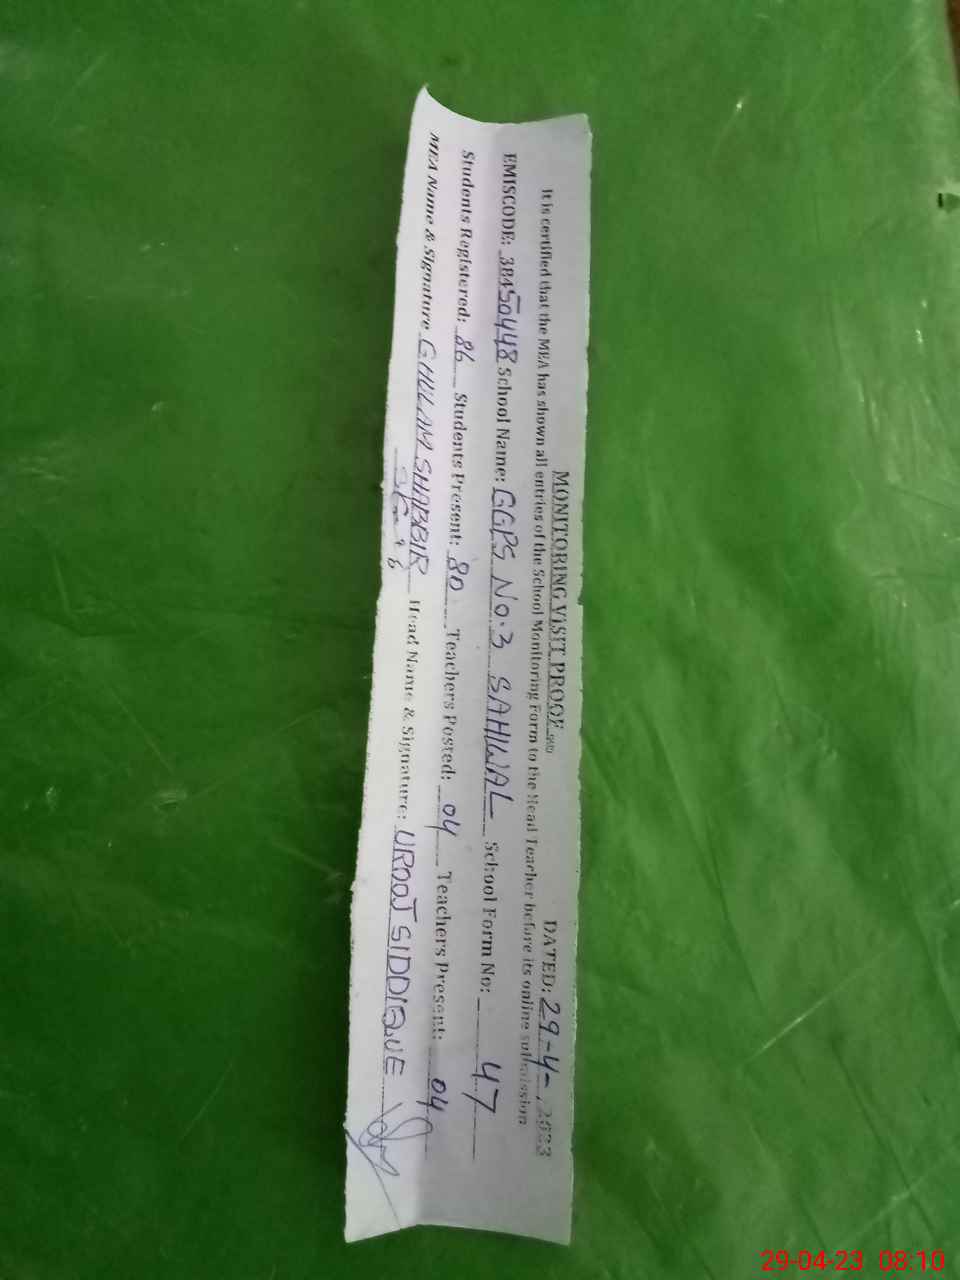 MONITORING VISIT PROOF DATED: 29-4-, 2023
It is certified that the MEA has shown all entries of the School Monitoring Form to the Head Teacher before its online submission
EMISCODE: 38450448 School Name: GGPS No.3 SAHIWAL School Form No: 47
Students Registered: 86 Students Present: 80 Teachers Posted: 04 Teachers Present: 04
MEA Name & Signature GHULAM SHABBIR Head Name & Signature: UROOJ SIDDIQUE
29-04-23 08:10